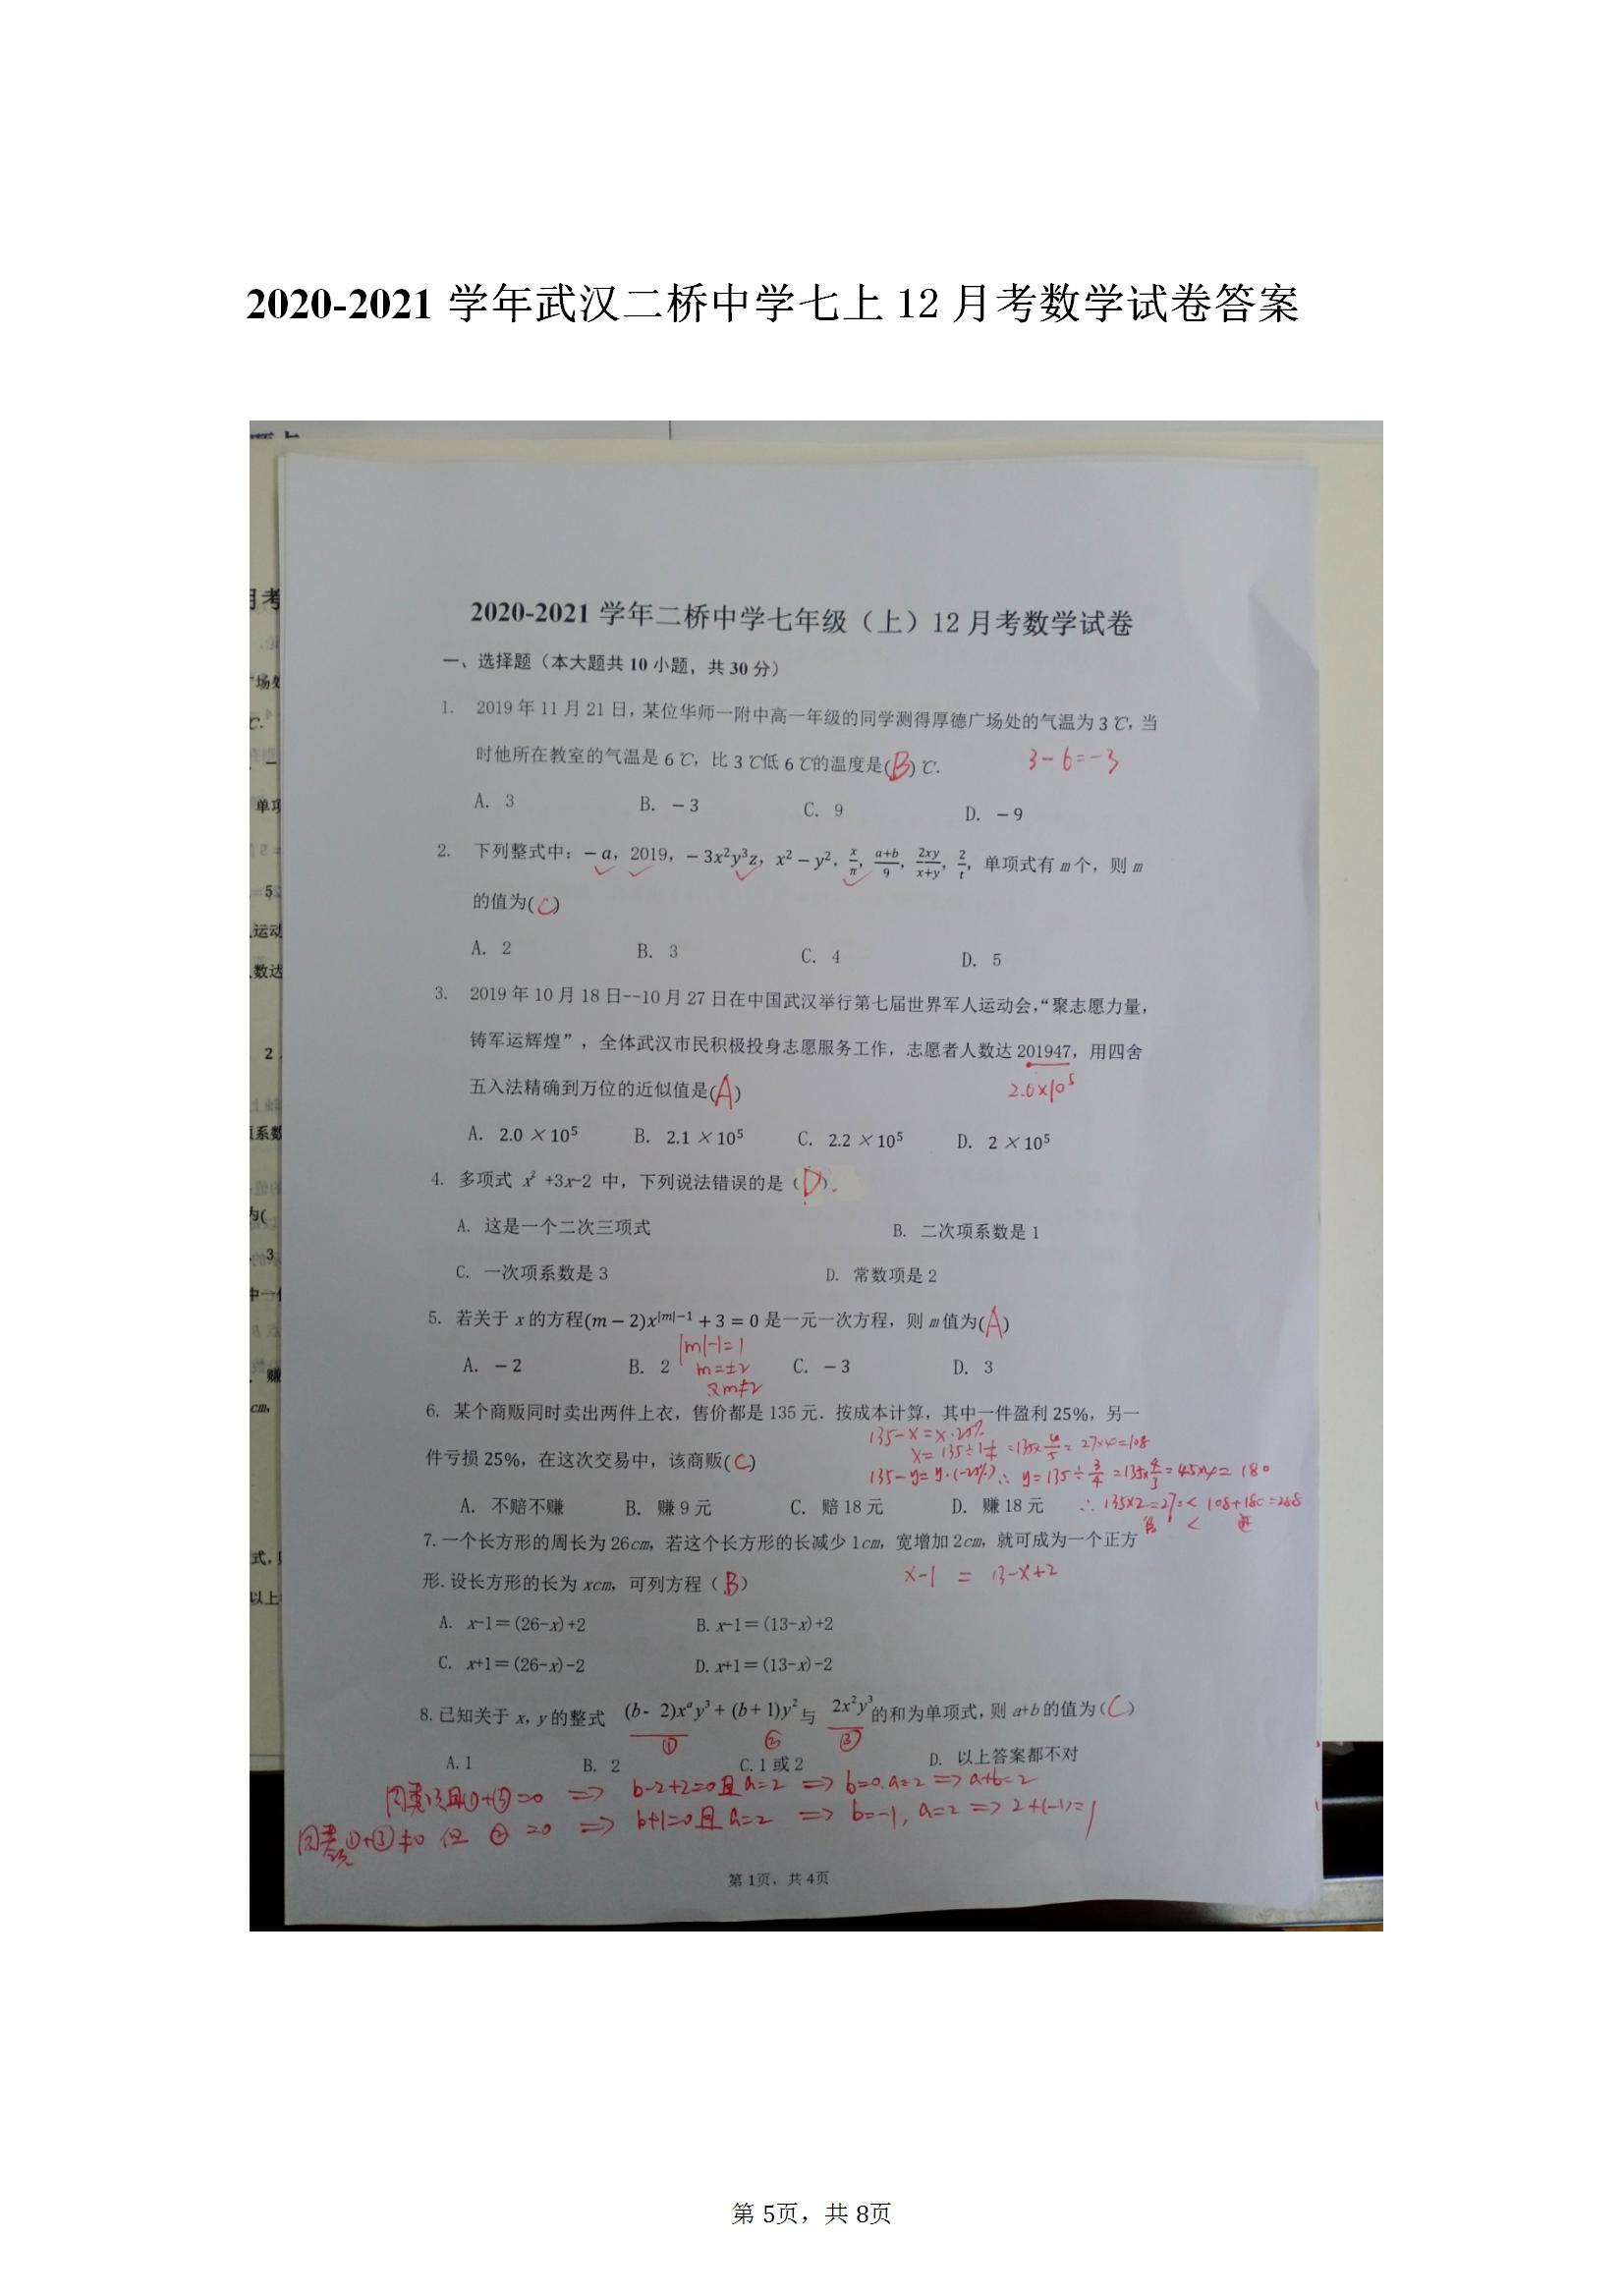 2020-2021 学年武汉二桥中学七上 12 月考数学试卷答案
月考
2020-2021 学年二桥中学七年级（上）12 月考数学试卷
一、选择题（本大题共 10 小题，共 30 分）
1. 2019 年 11 月 21 日，某位华师一附中高一年级的同学测得厚德广场处的气温为 3 ℃，当
时他所在教室的气温是 6 ℃，比 3 ℃低 6 ℃的温度是(B) ℃.
3-6=-3
A. 3 B. －3 C. 9 D. －9
2. 下列整式中：－a，2019，－3x²y³z，x²－y²，x/π，(a+b)/9，2xy/(x+y)，2/t，单项式有 m 个，则 m
的值为(C)
A. 2 B. 3 C. 4 D. 5
3. 2019 年 10 月 18 日--10 月 27 日在中国武汉举行第七届世界军人运动会，“聚志愿力量，
铸军运辉煌”，全体武汉市民积极投身志愿服务工作，志愿者人数达 201947，用四舍
五入法精确到万位的近似值是(A)
2.0×10⁵
A. 2.0 ×10⁵ B. 2.1 ×10⁵ C. 2.2 ×10⁵ D. 2 ×10⁵
4. 多项式 x² +3x-2 中，下列说法错误的是（D）.
A. 这是一个二次三项式 B. 二次项系数是 1
C. 一次项系数是 3 D. 常数项是 2
5. 若关于 x 的方程(m－2)x^{|m|－1}＋3＝0 是一元一次方程，则 m 值为(A)
|m|-1=1
A. －2 B. 2 C. －3 D. 3
m=±2
又m≠2
6. 某个商贩同时卖出两件上衣，售价都是 135 元．按成本计算，其中一件盈利 25%，另一
135-x=x·25%
件亏损 25%，在这次交易中，该商贩(C)
135-y=y·(-25%) ∴ y=135÷3/4=135×4/3=45×4=180
A. 不赔不赚 B. 赚 9 元 C. 赔 18 元 D. 赚 18 元
7. 一个长方形的周长为 26cm，若这个长方形的长减少 1cm，宽增加 2cm，就可成为一个正方
形. 设长方形的长为 xcm，可列方程（B）
x-1 = 13-x+2
A. x-1＝(26-x)+2 B. x-1＝(13-x)+2
C. x+1＝(26-x)-2 D. x+1＝(13-x)-2
8. 已知关于 x, y 的整式 (b- 2)xᵃy³+ (b+ 1)y² 与 2x²y³ 的和为单项式，则 a+b 的值为(C)
① ② ③
A. 1 B. 2 C. 1 或 2 D. 以上答案都不对
同类项且①+③=0 => b-2+2=0且a=2 => b=0,a=2 => a+b=2
同类项①+③≠0 但 ②=0 => b+1=0且a=2 => b=-1, a=2 => 2+(-1)=1
第 1页，共 4页
第 5页，共 8页